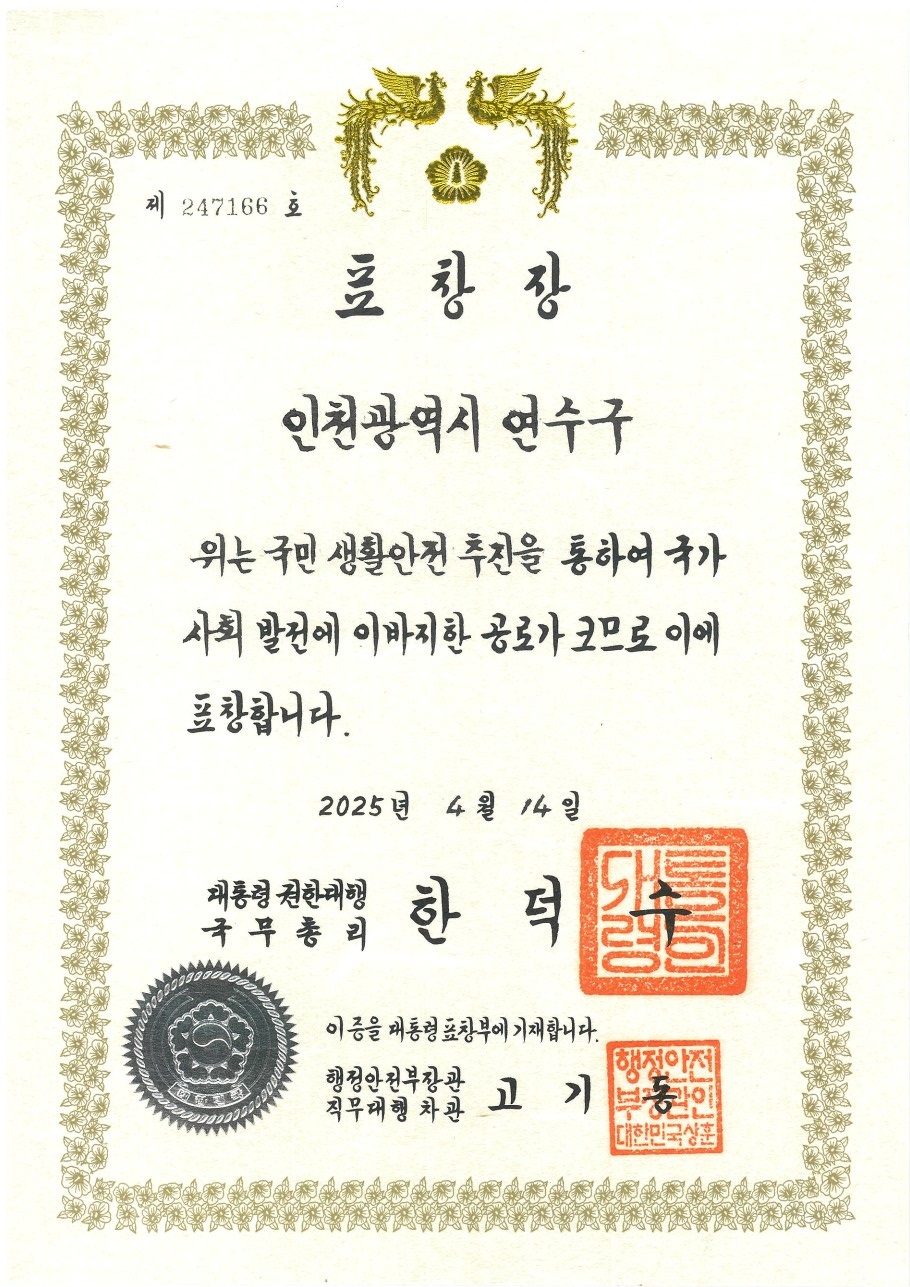 제 247166 호
표 창 장
인천광역시 연수구
위는 국민 생활안전 추진을 통하여 국가
사회 발전에 이바지한 공로가 크므로 이에
표창합니다.
2025년 4월 14일
대통령 권한대행
국 무 총 리
한 덕 수
대통령의인
이 증을 대통령표창부에 기재합니다.
행정안전부장관
직무대행 차관
고 기 동
행정안전
부장관인
대한민국상훈